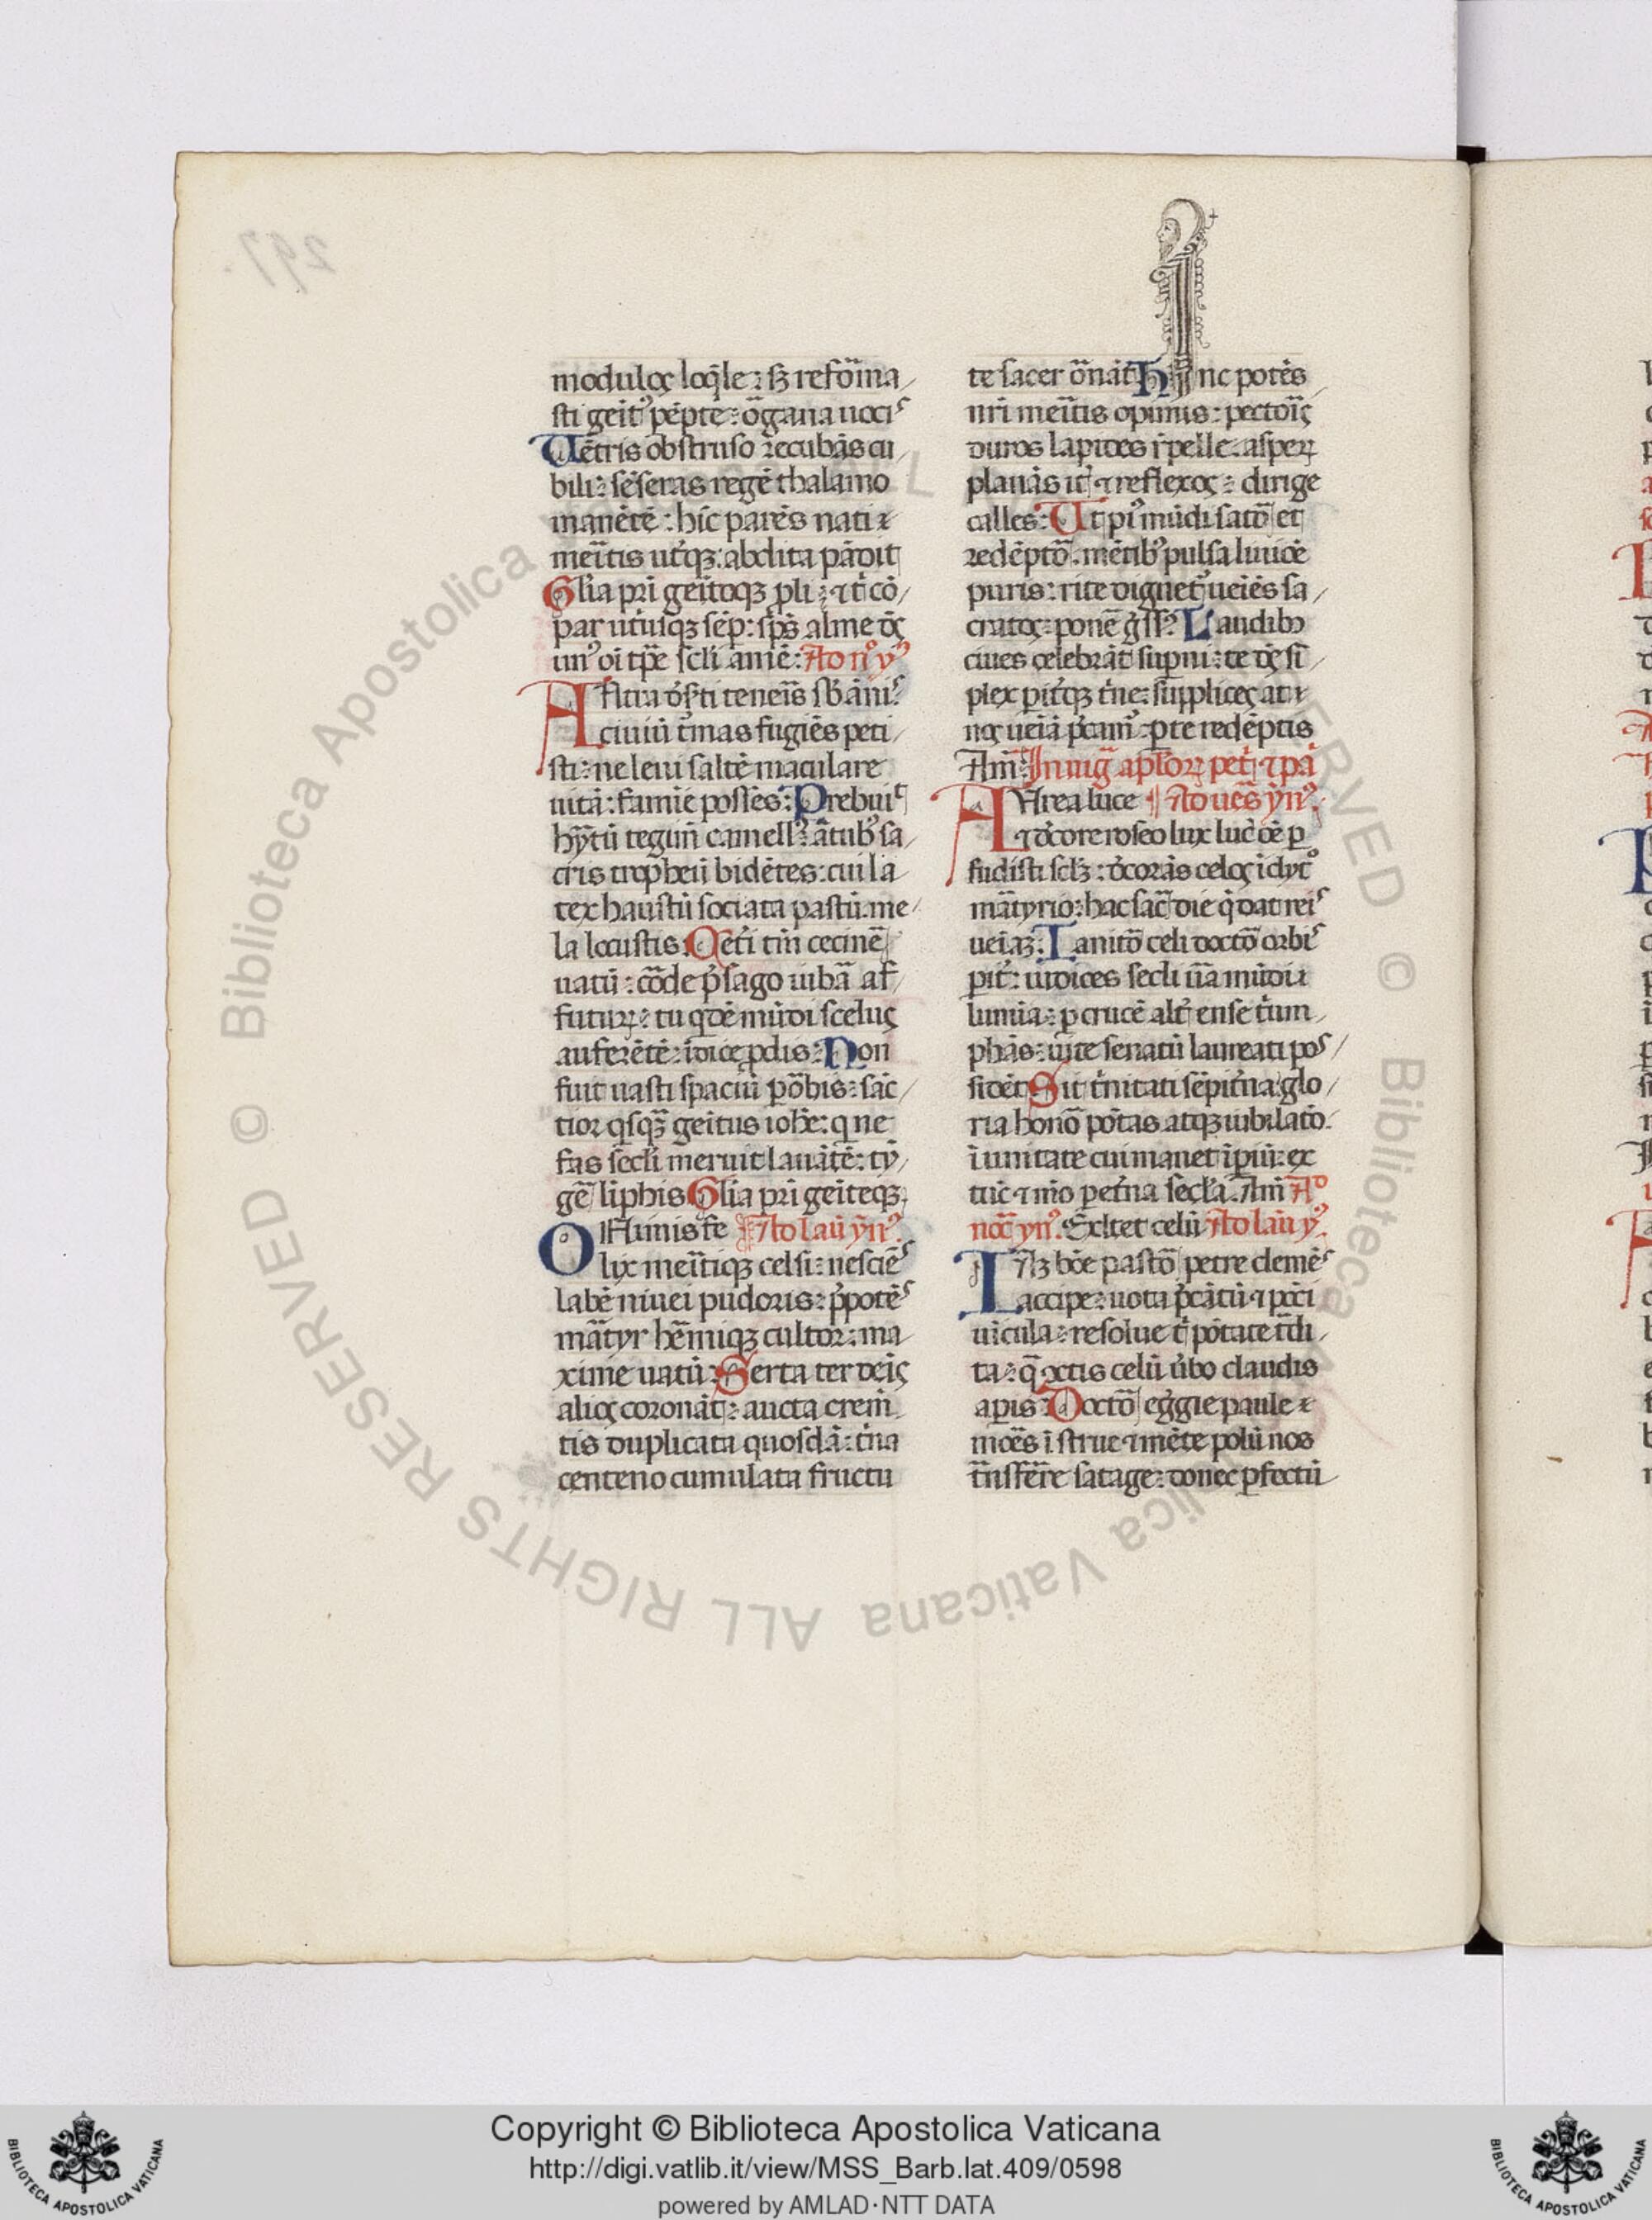 moduloς loq̄le: sꝫ refōma
sti geit᷒ pēpte: ōgana uoci᷒
Uētris obstruso recubās cu
bili: sēseras regē thalamo
manētē: hīc parēs nati ⁊
meītis utq̇ꝫ: abdita pādit
Glīa prī geītoqꝫ pli: ⁊ t̄ cō
par ut᷒usqꝫ sēp: sps̄ alme dς
un᷒ oī tp̄e scli amē: Ao n᷒ y᷒
ANtra d᷒sti teneīs sb āni᷒
ciuiū t᷒mas fugiēs peti
sti: ne leui saltē maculare
uitā: famīe possēs: Prebuit
hȳtū tegum̄ camell᷒: ātub᷒ sa
cris tropheū bidētes: cui la
tex haustū sociata pastū: me
la locustis: Cet᷒i tm̄ cecinē
uatū: cōde p᷒sago iubā af
futurꝝ: tu qdē mūdi sceluς
auferētē: īdice ꝓdis: Non
fuit uasti spaciū ꝑ ōbis: sāc
tior qsqꝫ geītus iohē: q ne
fas secli meruit lauātē: tȳ
gē liphis Glīa prī geīteqꝫ
O Nimis fe Ao lau yn᷒.
lix meītiqꝫ celsi: nesciē᷒
labē niuei pudoris: p᷒potē᷒
mātyr hēmiqꝫ cultor: ma
xime uatū: Serta ter deīς
alioς coronāt: aucta crem̄
tis duplicata quosdā: t᷒na
centeno cumulata fructu
te sacer ōnāt Hȳnc potēs
nr̄i meītis opimis: pectoīς
duros lapides r̄pelle: asperꝝ
planās it᷒ ⁊ reflexoς: dirige
calles: Ut pi᷒ mūdi satō et
redēptō: mētib᷒ pulsa liuiōe
puris: rite dignet᷒ ueiēs sa
cratoς: ponē gss᷒: Laudib᷒
ciues celebrāt suꝑni: te dς si
plex ꝑit᷒qꝫ t᷒ne: suppliceς at ⁊
noς ueiā p᷒cam᷒: ꝑce redēptis
Am̄: In uig᷒ aplōrꝝ pet᷒ ⁊ pā
AUrea luce ¶ Ao ues yn᷒.
⁊ d᷒core roseo lux luc᷒ ōē ꝑ
fudisti sclꝫ: d᷒corās celoς īclyt᷒
mātyrio: hac sac᷒ die q᷒ dat rei᷒
ueiaꝫ: Ianitō celi doctō orbi᷒
ꝑit᷒: iudices secli ūa mūdi
lumīa: ꝑ crucē alt᷒ ense t᷒um
phās: uite senatū laureati po᷒
sidēt Sit t᷒nitati sēpit᷒na glo
ria honō potas atqꝫ iubilatō:
ī unitate cui manet īꝑiū: ex
tūc ⁊ mō ꝑ et᷒na secla. Am̄ Ao
noc̄ yn᷒. Exltet celū Ao lau y᷒.
IAꝫ bōe pastō petre clemē᷒
accipe: uota p᷒cātū ⁊ pcci
uīcula: resolue t᷒ ptāte t᷒di
ta: q᷒ ꝯctis celū ūbo claudis
aꝑis: Doctō eg᷒gie paule ⁊
moēs īstrue ⁊ mēte polū nos
t᷒nsferre satage: donec ꝑfectū
Copyright © Biblioteca Apostolica Vaticana
http://digi.vatlib.it/view/MSS_Barb.lat.409/0598
powered by AMLAD·NTT DATA